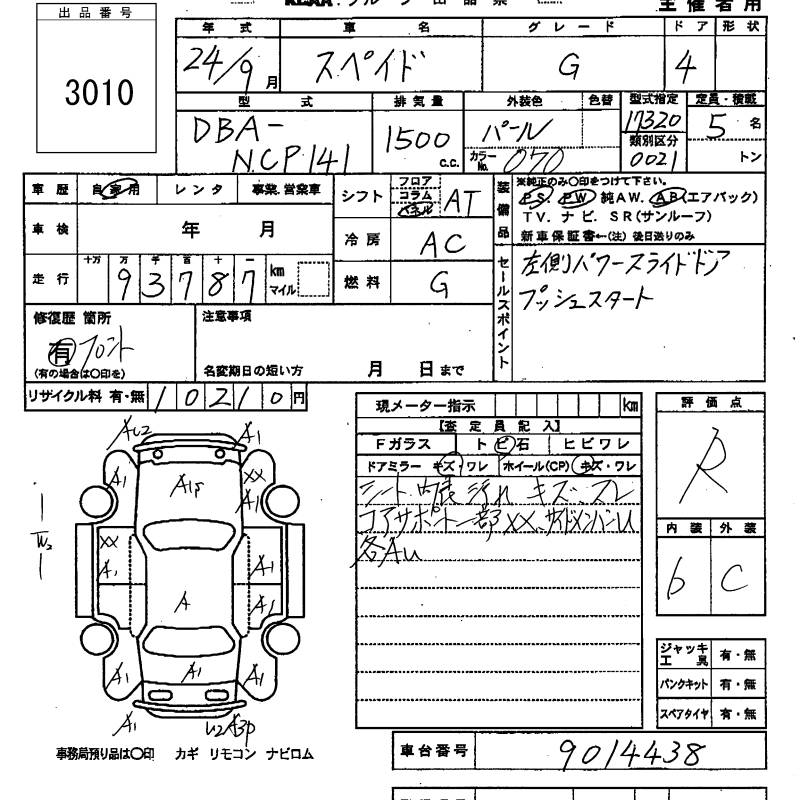 出品番号
3010
主催者用
年式 車名 グレード ドア 形状
24/9月 スペイド G 4
型式 排気量 外装色 色替 型式指定 定員・積載
DBA-NCP141 1500c.c. パール 17320 5名
カラーNo. 070 類別区分 0021 トン
車歴 自家用 レンタ 事業.営業車
車検 年 月
走行 十万 万 千 百 十 一 km マイル
93787
シフト フロア コラム パネル AT
冷房 AC
燃料 G
装備品
※純正のみ○印をつけて下さい。
PS. PW 純AW. AB(エアバック)
TV. ナビ. SR(サンルーフ)
新車保証書←(注) 後日送りのみ
セールスポイント
左側パワースライドドア
プッシュスタート
修復歴 箇所
有 フロント
(有の場合は○印を)
注意事項
名変期日の短い方 月 日まで
リサイクル料 有・無 10210円
現メーター指示 km
【査定員記入】
Fガラス トビ石 ヒビワレ
ドアミラー キズ・ワレ ホイール(CP) キズ・ワレ
シート、内装 汚れ キズ、スレ
コアサポート一部XX、サイドメンバーU
各AU
評価点
R
内装 外装
b C
ジャッキ工具 有・無
パンクキット 有・無
スペアタイヤ 有・無
AU2 A1
A1P
A1 XX A1
W2
XX A1 A1
A A1
A1 A1 A1
A1 U2 A3P
事務局預り品は○印 カギ リモコン ナビロム
車台番号 9014438